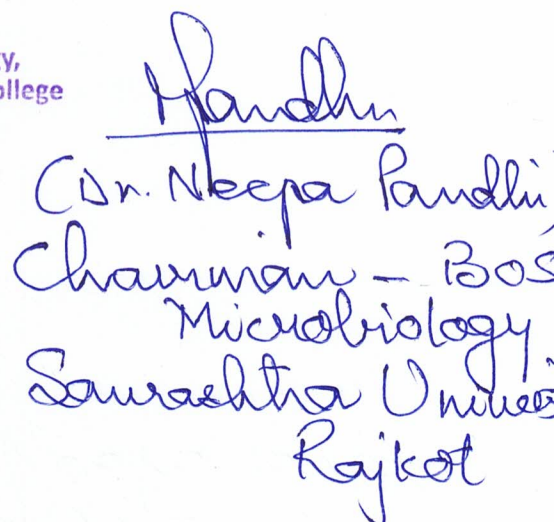 y,
ollege
NPandhi
(Dr. Neepa Pandhi
Chairman - BOS
Microbiology
Saurashtra Univers
Rajkot